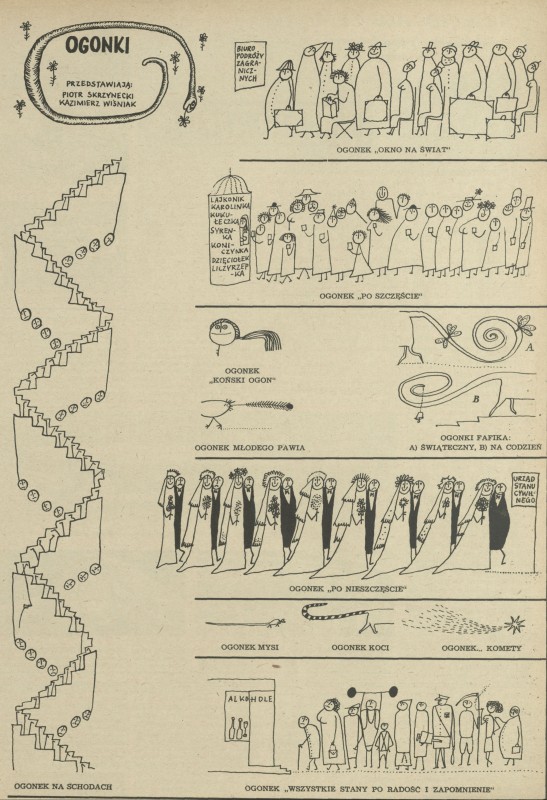 OGONKI
PRZEDSTAWIAJĄ:
PIOTR SKRZYNECKI
KAZIMIERZ WIŚNIAK
BIURO
PODRÓŻY
ZAGRA-
NICZ-
NYCH
OGONEK „OKNO NA ŚWIAT”
LAJKONIK
KAROLINKA
KUKU-
ŁECZKA
SYREN-
KA
KONI-
CZYNKA
DZIĘCIOŁEK
LILZYRZEP-
KA
OGONEK „PO SZCZĘŚCIE”
OGONEK
„KOŃSKI OGON”
OGONEK MŁODEGO PAWIA
A
B
OGONKI FAFIKA:
A) ŚWIĄTECZNY, B) NA CODZIEŃ
URZĄD
STANU
CYWIL-
NEGO
OGONEK „PO NIESZCZĘŚCIE”
OGONEK MYSI
OGONEK KOCI
OGONEK... KOMETY
ALKOHOLE
OGONEK NA SCHODACH
OGONEK „WSZYSTKIE STANY PO RADOŚĆ I ZAPOMNIENIE”